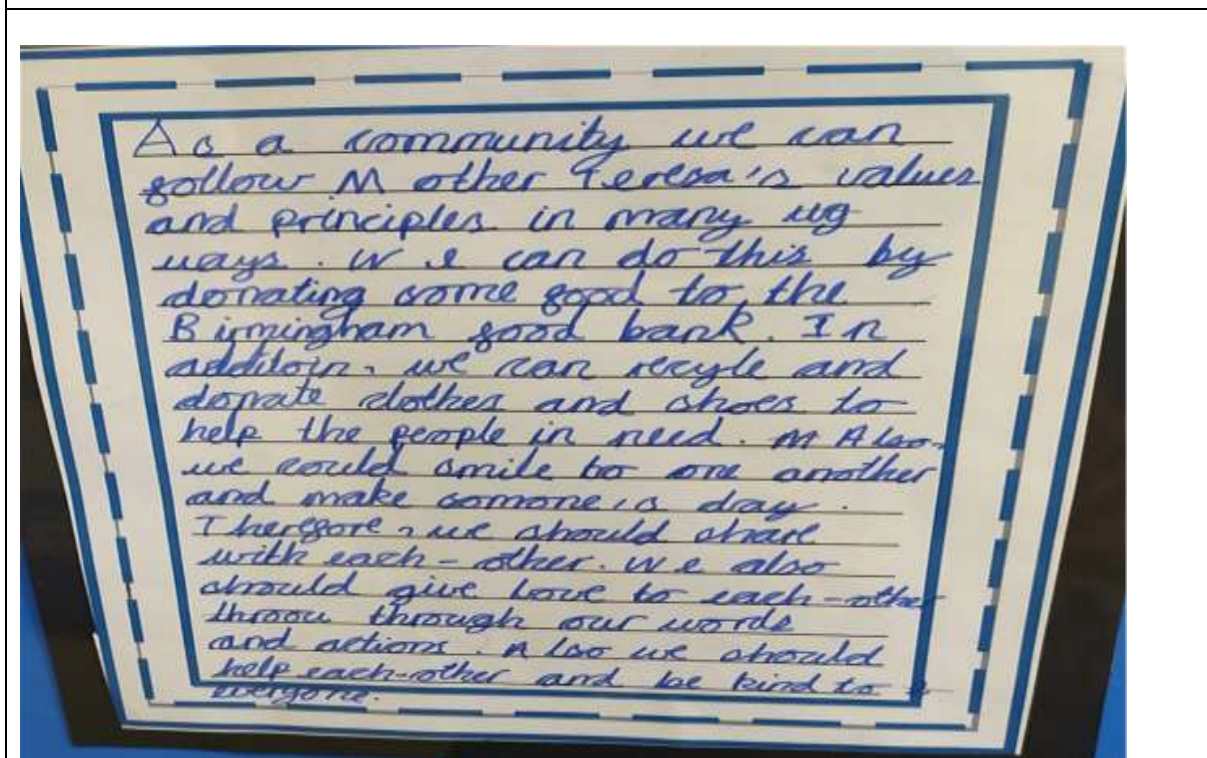 As a community we can
follow Mother Teresa's values
and principles in many ug
ways. We can do this by
donating some food to the
Birmingham food bank. In
additoin, we can recyle and
donate clothes and shoes to
help the people in need. m Also,
we could smile to one another
and make somone's day.
Therefore, we should share
with each-other. We also
should give love to each-other
throou through our words
and actions. Also we should
help each-other and be kind to
everyone.